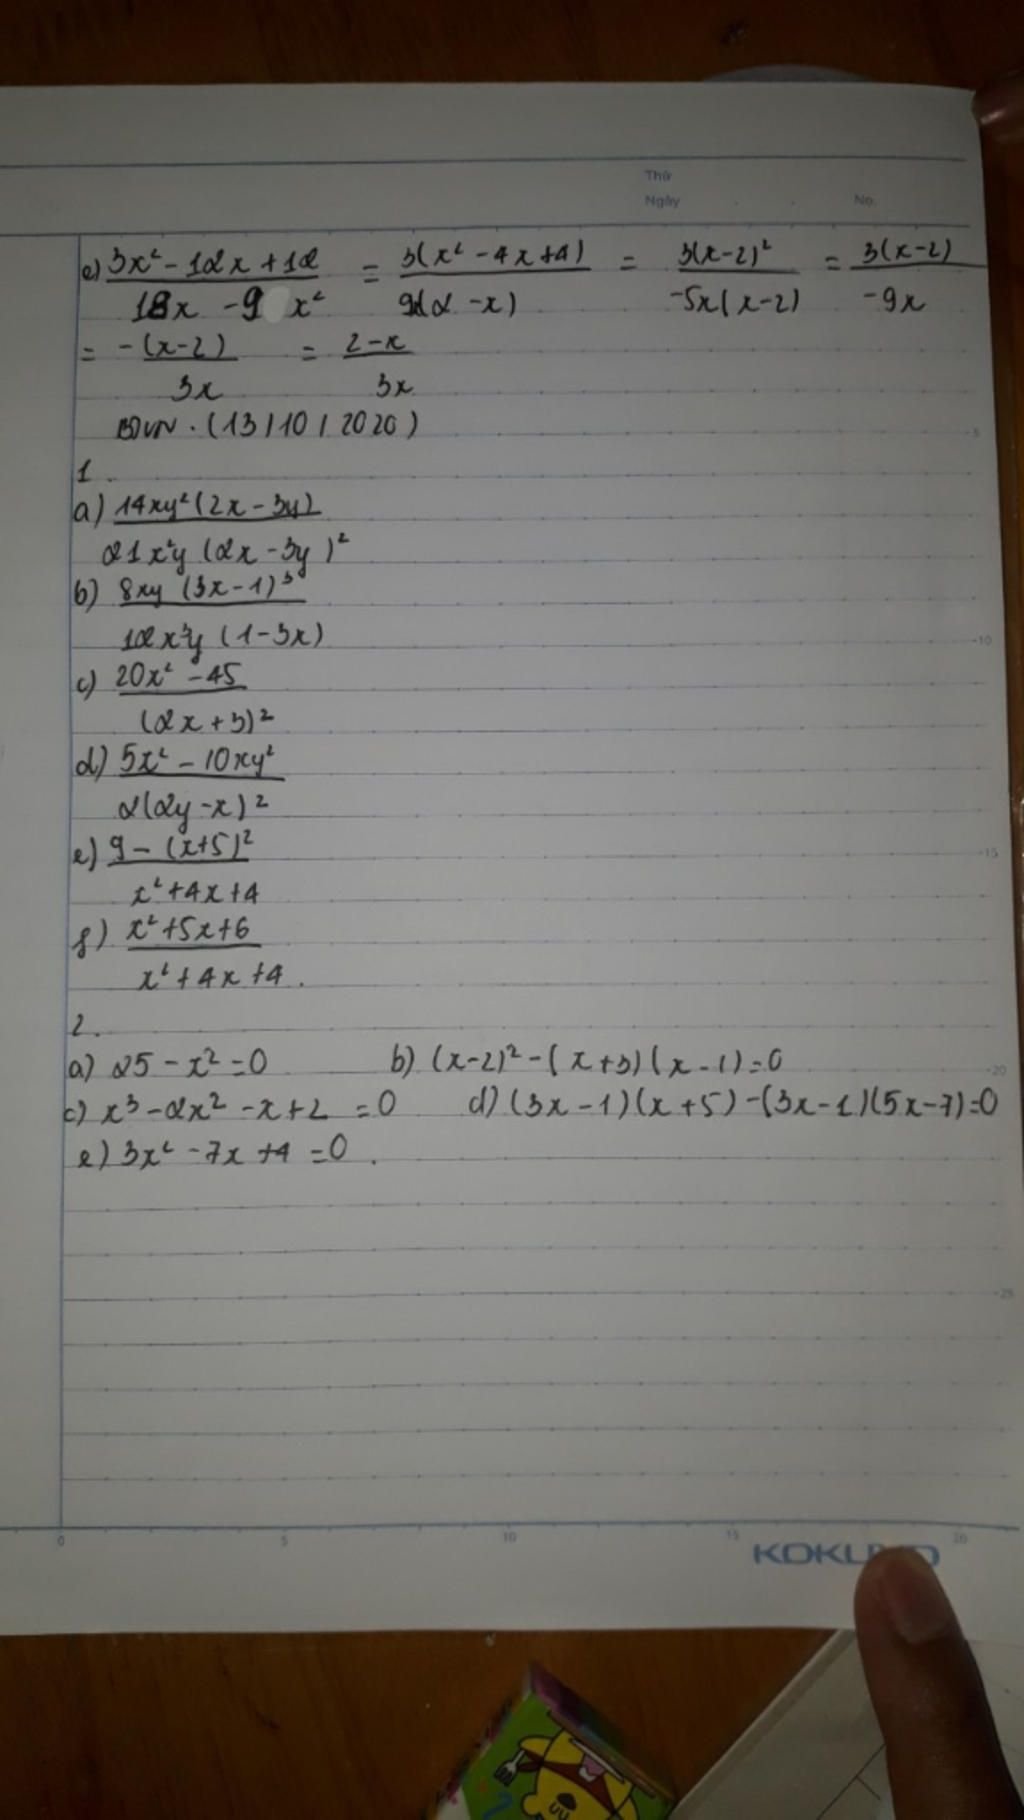 Thứ
Ngày No.
e) 3x² - 12x + 12 / 18x - 9 x² = 3(x² - 4x + 4) / 9x(2 - x) = 3(x-2)² / -5x(x-2) = 3(x-2) / -9x
= -(x-2) / 3x = 2-x / 3x
BDVN. (13/10/2020)
1.
a) 14xy²(2x - 3y) / 21x²y (2x - 3y)²
b) 8xy (3x - 1)³ / 12x³y (1 - 3x)
c) 20x² - 45 / (2x + 3)²
d) 5x² - 10xy² / 2(2y - x)²
e) 9 - (x+5)² / x² + 4x + 4
f) x² + 5x + 6 / x² + 4x + 4.
2.
a) 25 - x² = 0 b) (x-2)² - (x+3)(x-1) = 0
c) x³ - 2x² - x + 2 = 0 d) (3x - 1)(x + 5) - (3x - 1)(5x - 7) = 0
e) 3x² - 7x + 4 = 0.
5
10
15
20
25
0 5 10 15 20